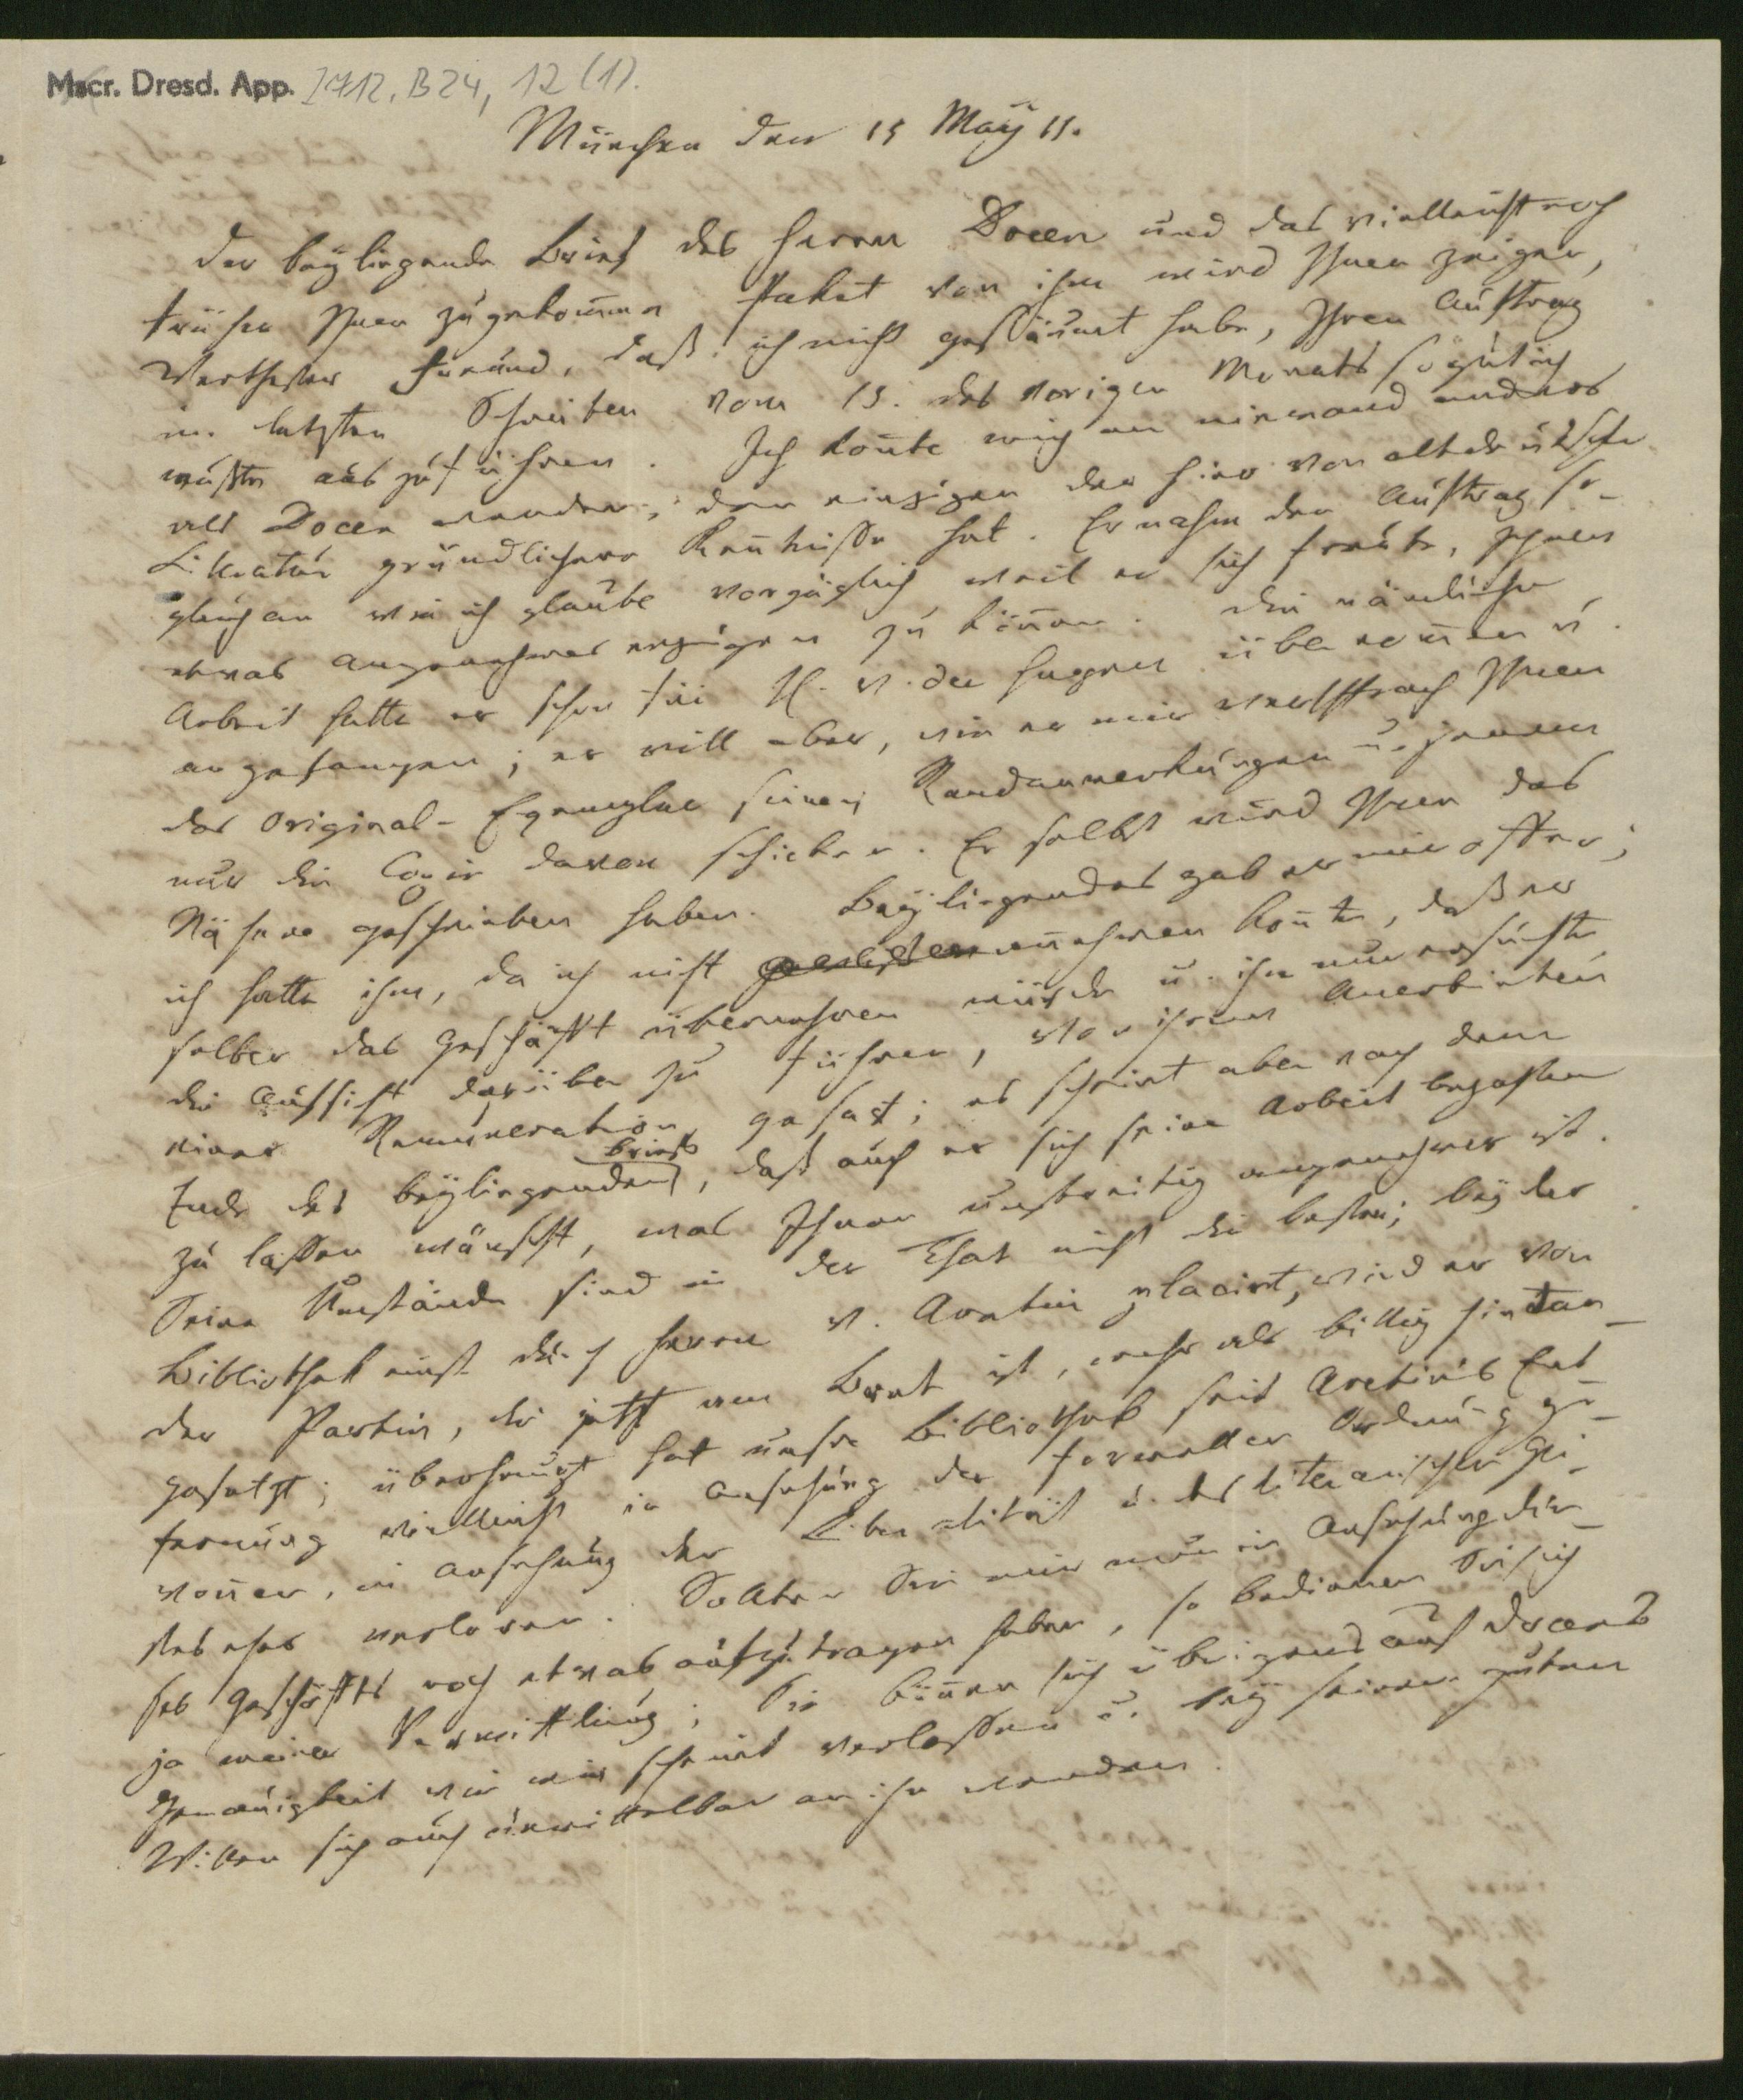 Mscr. Dresd. App. 2712, B24, 12 (1).
München den 15 May 11.
Der beyliegende Brief des Herrn Docen und das vielleicht noch
früher Ihnen zugekomme Paket von ihm wird Ihnen zeigen,
Werthester Freund, daß ich nicht gesäumt habe, Ihren Auftrag
im letzten Schreiben vom 15. des vorigen Monats so gut ich
wußte auszuführen. Ich konnte mich an niemand anders
als Docen wenden, den einzigen der hier von altdeutscher
Literatur gründlichere Kenntnisse hat. Er nahm den Auftrag so-
gleich an wie ich glaube vorzüglich weil er sich freute, Ihnen
etwas angenehmes erzeigen zu können. Die nämliche
Arbeit hatte er schon für H. v. der Hagen übernommen u.
angefangen; er will aber, wie er mir versprach Ihnen
das Original-Exemplar seiner Randanmerkungen u. jenem
nur die Copie davon schicken. Er selbst wird Ihnen das
Nähere geschrieben haben. Beyliegendes gab er mir offen;
ich hatte ihm, da ich nicht annehmen konnte, daß er
selber das Geschäft übernehmen würde u. ihn nur ersuchte
die Aufsicht darüber zu führen, von ihrem Anerbieten
einer Remuneration gesagt; es scheint aber nach dem
Ende des beyliegenden Briefs, daß auch er sich seine Arbeit bezahlen
zu lassen wünscht, was Ihnen unstreitig angenehmer ist.
Seine Umstände sind in der That nicht die besten; bey der
Bibliothek einst durch Herrn v. Aretin placirt, wird er von
der Parthie, die jetzt am Bret ist, mehr als billig hintan-
gesetzt; überhaupt hat unsre Bibliothek seit Aretin's Ent-
fernung vielleicht in Ansehung der formellen Ordnung ge-
wonnen, in Ansehung der Liberalität u. des literarischen Gei-
stes eher verloren. Sollten Sie mir nun in Ansehung die-
ses Geschäfts noch etwas aufzutragen haben, so bedienen Sie sich
ja meiner Vermittlung; Sie können sich übrigens auf Docens
Genauigkeit wie mir scheint verlassen u. bey seinem guten
Willen sich auch unmittelbar an ihn wenden.